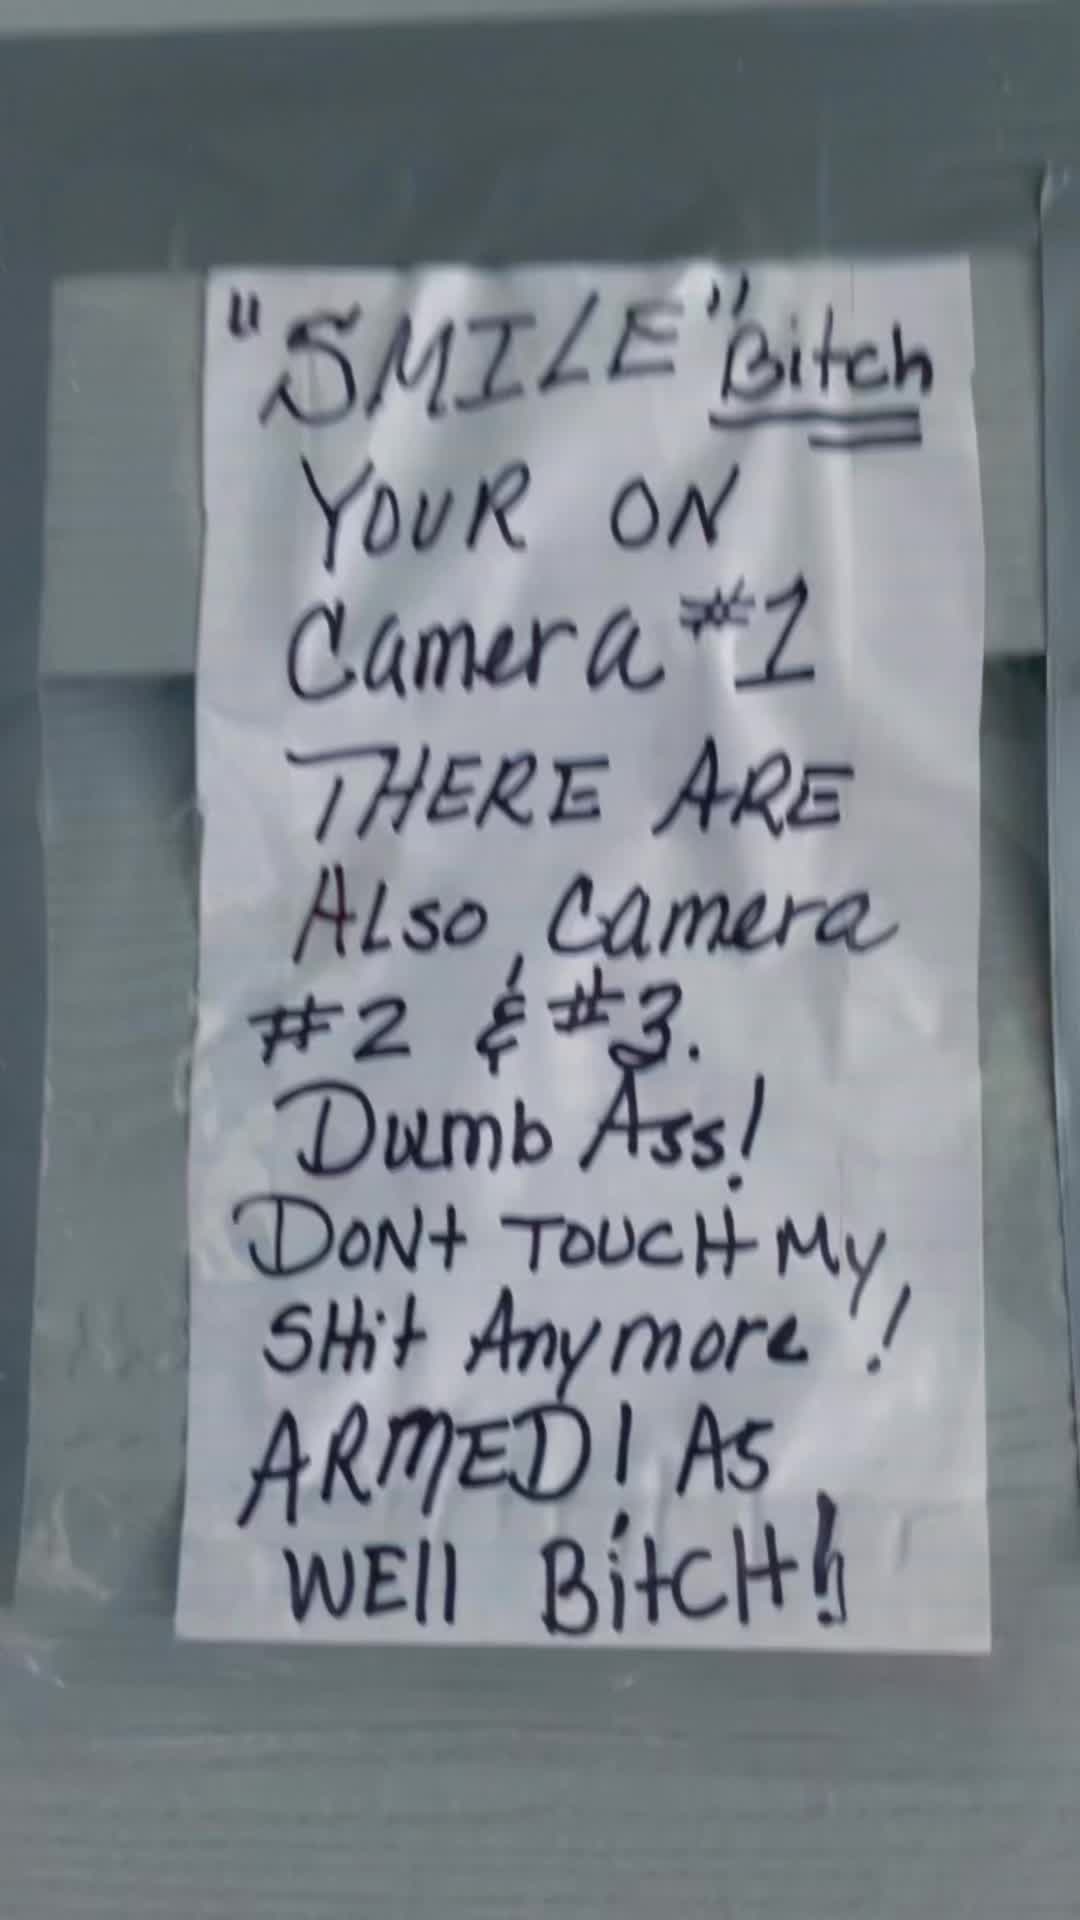 "SMILE" Bitch
YOUR ON
Camera #1
THERE ARE
ALso, Camera
#2 & #3.
Dumb Ass!
DONt TOUCH My
SHit Anymore!
ARMED! AS
WEll BitCH!!